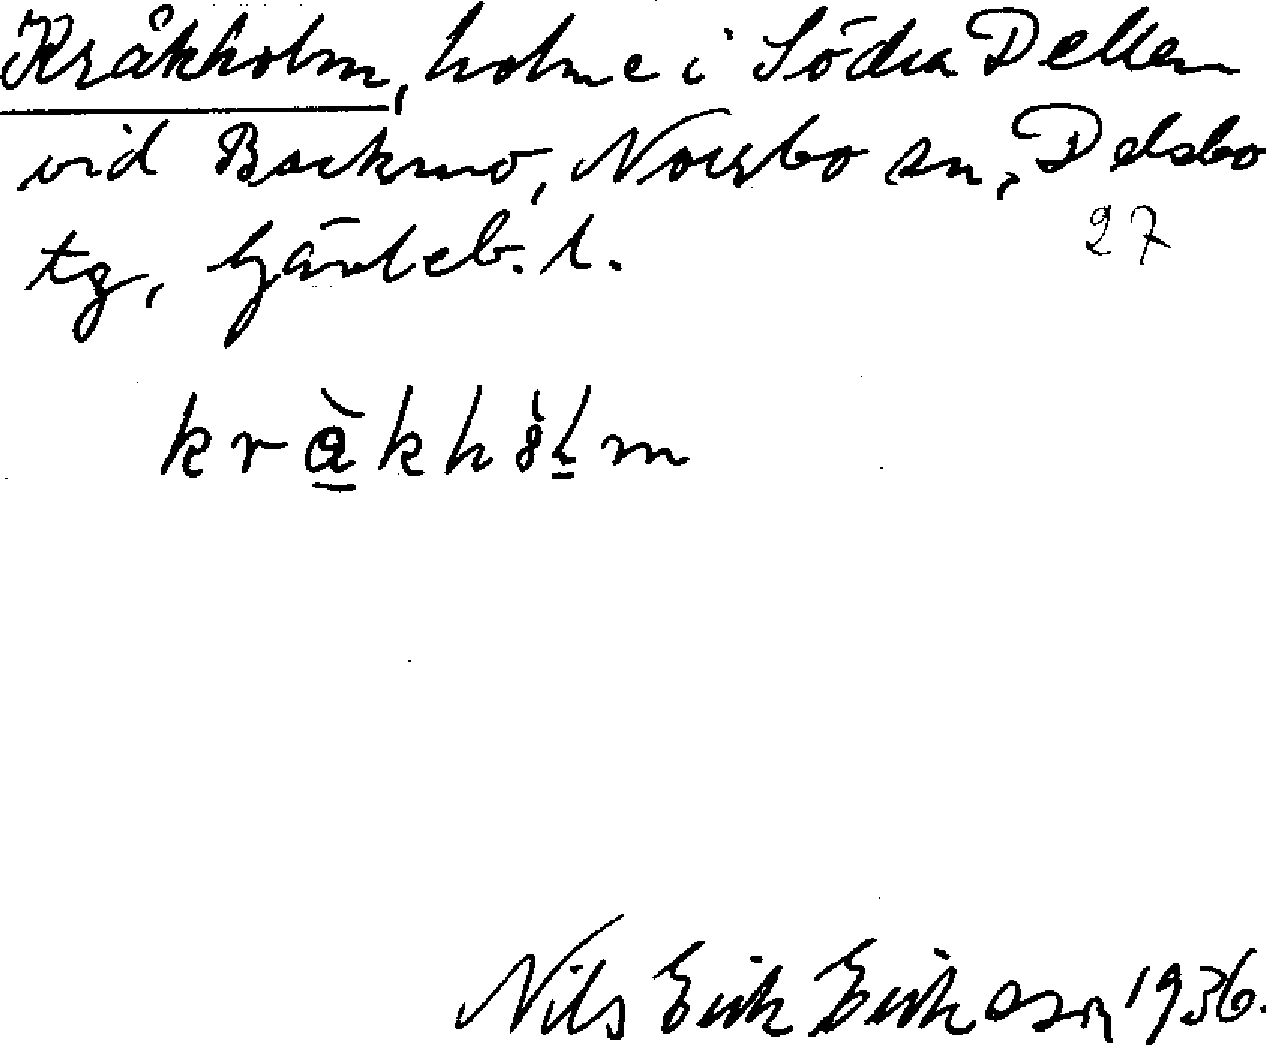 Kråkholm, holme i Södra Dellen
vid Backmo, Norrbo sn, Delsbo
tg, Gävleb. l.
27
Nils Erik Eriksson 1936.